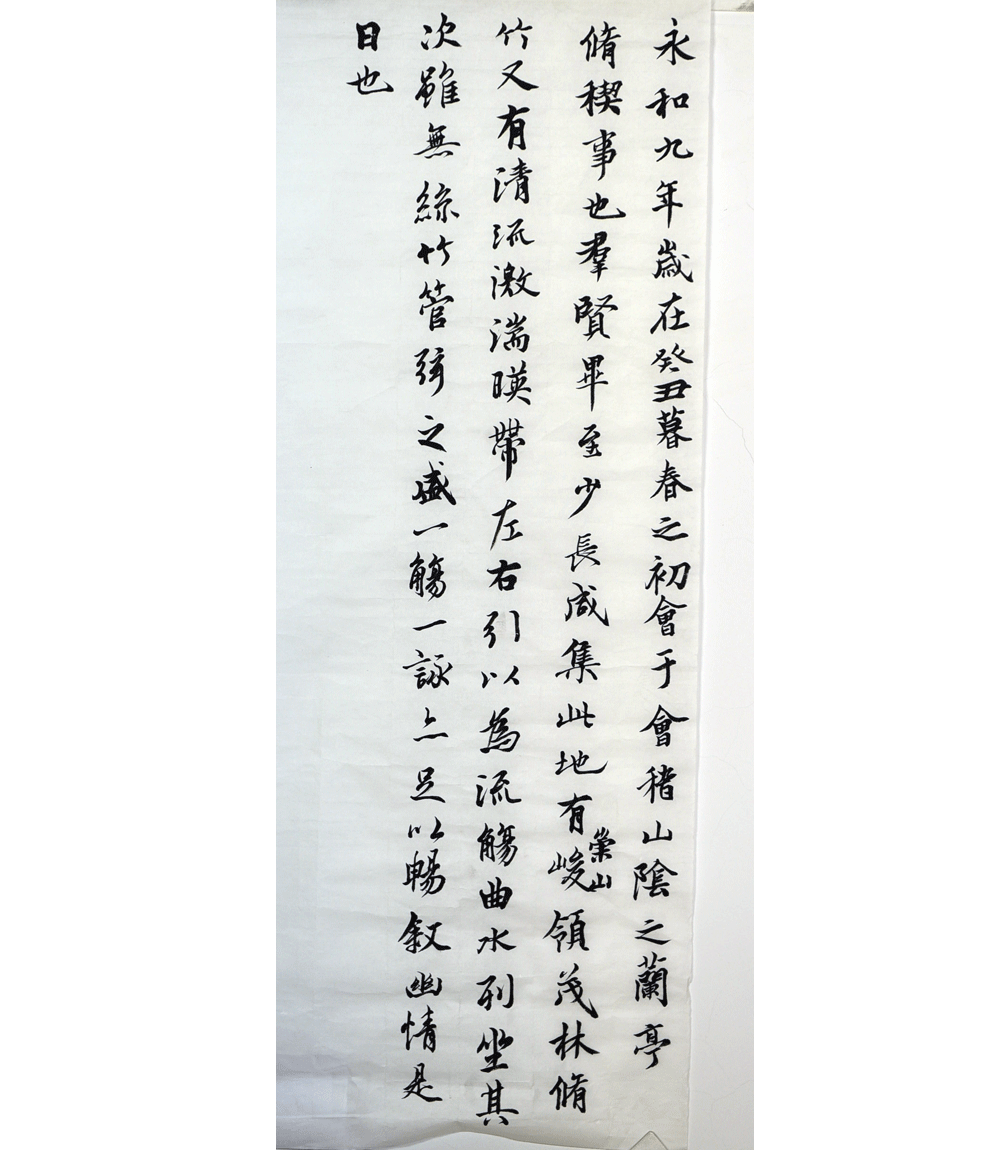 永和九年歲在癸丑暮春之初會于會稽山陰之蘭亭
脩稧事也羣賢畢至少長咸集此地有崇山峻領茂林脩
竹又有清流激湍暎帶左右引以為流觴曲水列坐其
次雖無絲竹管弦之盛一觴一詠亦足以暢叙幽情是
日也